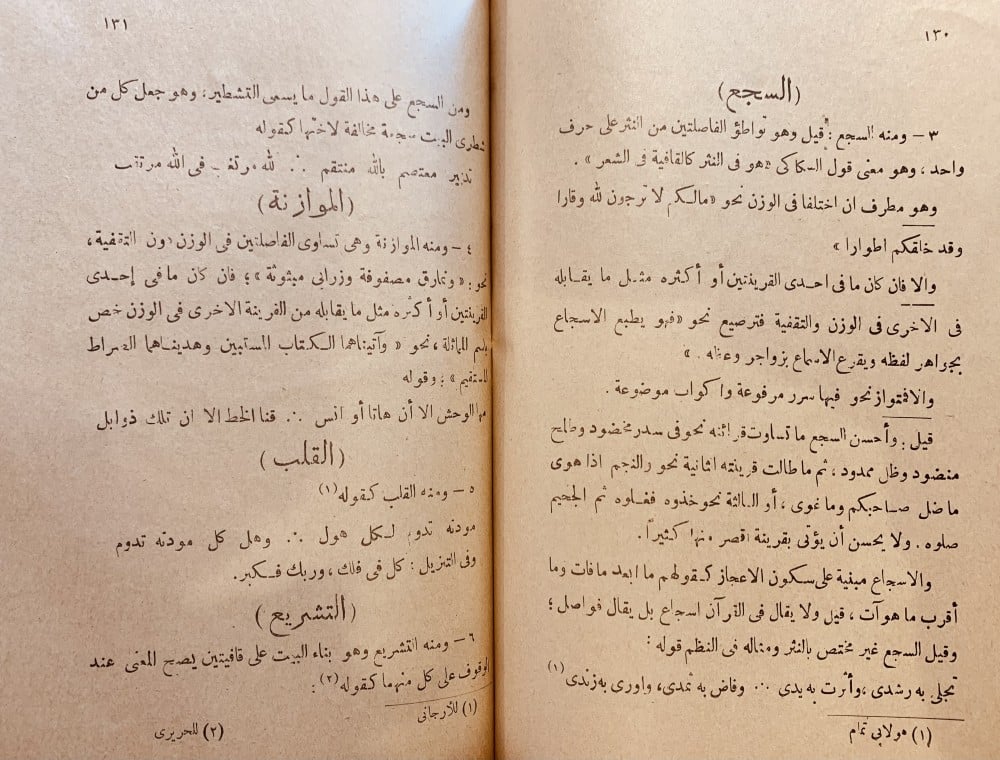 ١٣٠
(السجع)
٣ – ومنه السجع: قيل وهو تواطؤ الفاصلتين من النثر على حرف
واحد، وهو معنى قول السكاكى «هو فى النثر كالقافية فى الشعر».
وهو مطرف ان اختلفا فى الوزن نحو «مالكم لا ترجون لله وقارا
وقد خلقكم اطوارا»
والا فان كان ما فى احدى القرينتين أو أكثره مثل ما يقابله
فى الاخرى فى الوزن والتقفية فترصيع نحو «فهو يطبع الاسجاع
بجواهر لفظه ويقرع الاسماع بزواجر وعظه.»
والا فمتواز نحو فيها سرر مرفوعة واكواب موضوعة.
قيل: وأحسن السجع ما تساوت قرائنه نحو فى سدر مخضود وطلح
منضود وظل ممدود، ثم ما طالت قرينته الثانية نحو والنجم اذا هوى
ما ضل صاحبكم وما غوى، أو الثالثة نحو خذوه فغلوه ثم الجحيم
صلوه. ولا يحسن أن يؤتى بقرينة اقصر منها كثيراً.
والاسجاع مبنية على سكون الاعجاز كقولهم ما ابعد ما فات وما
أقرب ما هو آت، قيل ولا يقال فى القرآن اسجاع بل يقال فواصل؛
وقيل السجع غير مختص بالنثر ومثاله فى النظم قوله:
تجلى به رشدى، وأثرت به يدى ... وفاض به ثمدى، واورى به زندى (١)
(١) هو لابي تمام
١٣١
ومن السجع على هذا القول ما يسمى التشطير، وهو جعل كل من
شطرى البيت سجعة مخالفة لاختها كقوله
تدبير معتصم بالله منتقم ∴ لله مرتغب فى الله مرتقب
(الموازنة)
٤ – ومنه الموازنة وهى تساوى الفاصلتين فى الوزن دون التقفية،
نحو: «ونمارق مصفوفة وزرابى مبثوثة»؛ فان كان ما فى إحدى
القرينتين أو أكثره مثل ما يقابله من القرينة الاخرى فى الوزن خص
باسم المماثلة، نحو «وآتيناهما الكتاب المستبين وهديناهما الصراط
المستقيم»؛ وقوله
مها الوحش الا أن هاتا أو انس ∴ قنا الخط الا ان تلك ذوابل
(القلب)
٥ – ومنه القلب كقوله (١)
مودته تدوم لكل هول ∴ وهل كل مودته تدوم
وفى التنزيل: كل فى فلك، وربك فكبر.
(التشريع)
٦ – ومنه التشريع وهو بناء البيت على قافيتين يصح المعنى عند
الوقوف على كل منهما كقوله (٢):
(١) للأرجانى
(٢) للحريرى